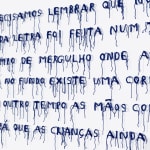 ECISAMOS LEMBRAR QUE NO
DA LETRA FOI FEITA NUM
MIO DE MERGULHO ONDE A
NO FUNDO EXISTE UMA COR
OUTRO TEMPO AS MÃOS CO
RÁ QUE AS CRIANÇAS AINDA